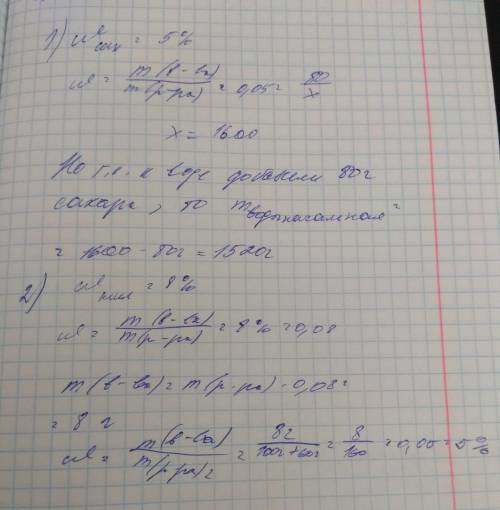 1) ω сах = 5%
ω = m(в-ва)/m(р-ра) = 0,05 = 80/x
x = 1600
Но т.к. к воде добавили 80г
сахара, то m воды начальная =
= 1600 - 80г = 1520г
2) ω = 8%
ω = m(в-ва)/m(р-ра) = 8% = 0,08
m(в-ва) = m(р-ра) · 0,08 =
= 8 г
ω = m(в-ва)/m(р-ра)2 = 8г/100г+60г = 8/160 = 0,05 = 5%